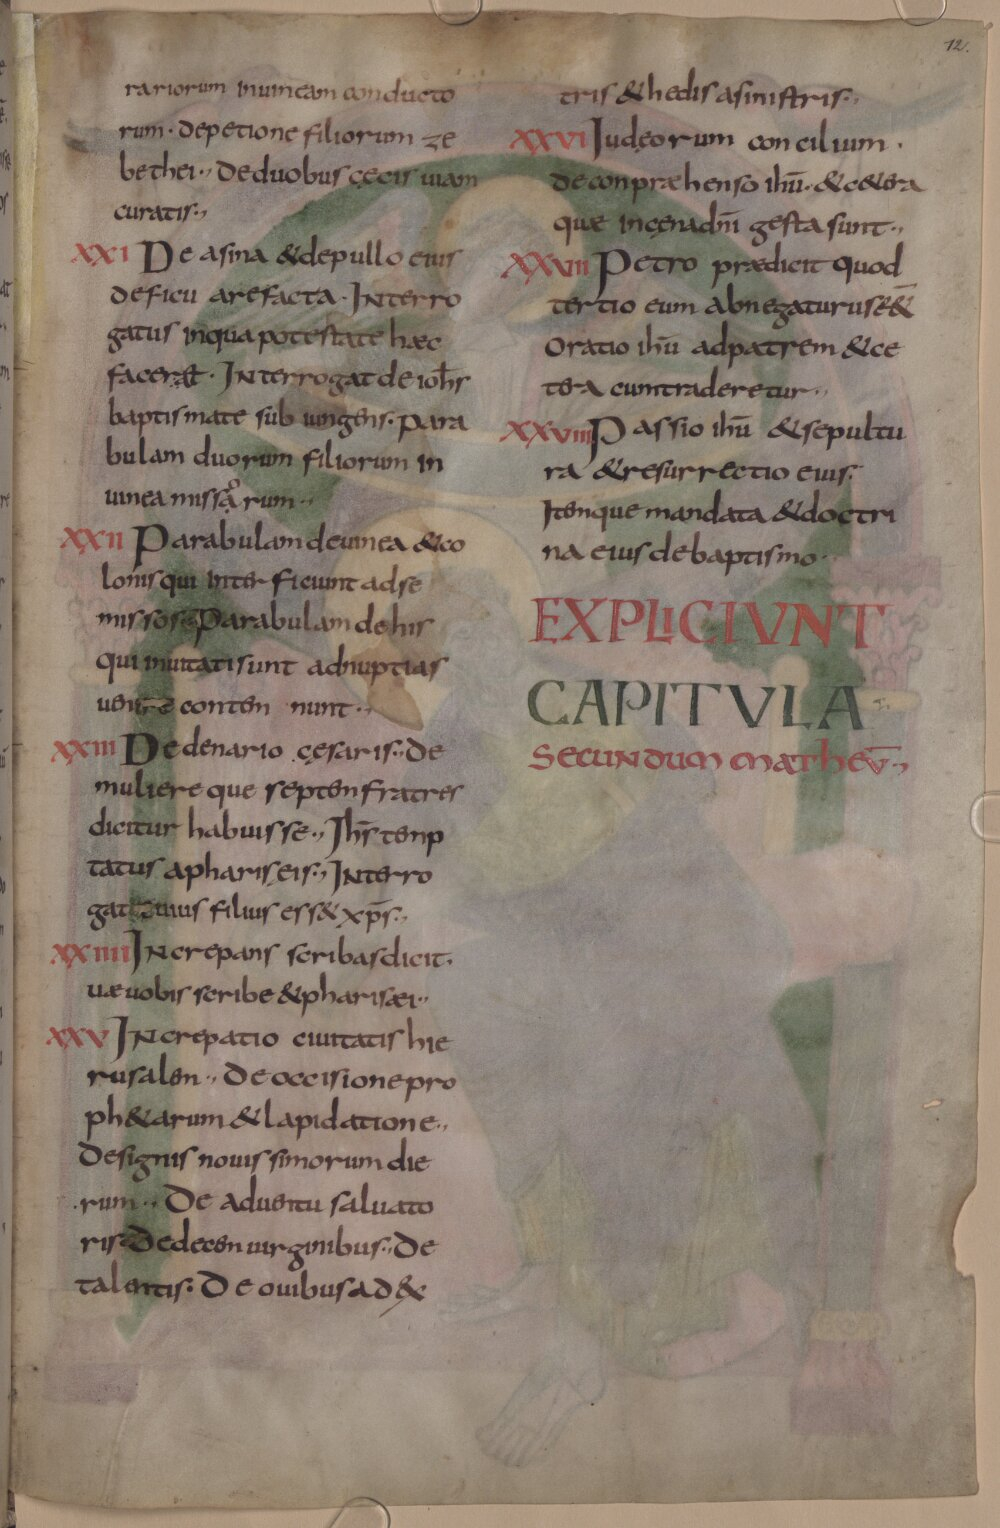 12.
rariorum inuineam conducto
rum · depetione filiorum ze
bethei ·, deduobus cęcis uiam
curatis ·,
XXI De asina & depullo eius
deficu arefacta · Interro
gatus inqua potestate hæc
faceret · Interrogat de ioħs
baptismate sub iungens · para
bulam duorum filiorum in
uinea missaorum ·,
XXII Parabulam deuinea & co
lonis qui interficiunt ad se
missos · Parabulam de his
qui inuitati sunt ad nuptias
uenire conten nunt ·,
XXIII De denario cęsaris ·, de
muliere que septem fratres
dicitur habuisse ·, Ihs̄ temp
tatus a phariseis ·, Interro
gat cuius filius ess& xp̄s ·,
XXIIII Increpans scribas dicit ·
uæ uobis scribe & pharisæi ·,
XXV Increpatio ciuitatis hie
rusalen ·, de occisione pro
ph&arum & lapidatione ·,
designis nouissimorum die
rum ·, De aduentu saluato
ris De decen uirginibus ·, de
talentis · De ouibus ad &
tris & hedis a sinistris ·,
XXVI Iudęorum concilium ·
de conpræhenso ihū · & c&era
quæ in cęna dn̄i gesta sunt ·,
XXVII Petro prædicit quod
tertio eum abnegaturus e&
oratio ihū ad patrem & ce
tera cum traderetur ·,
XXVIII Passio ihū & sepultu
ra & resurrectio eius ·
Itemque mandata & doctri
na eius de baptismo ·
EXPLICIUNT
CAPITVLA
Secundum matheū ·,